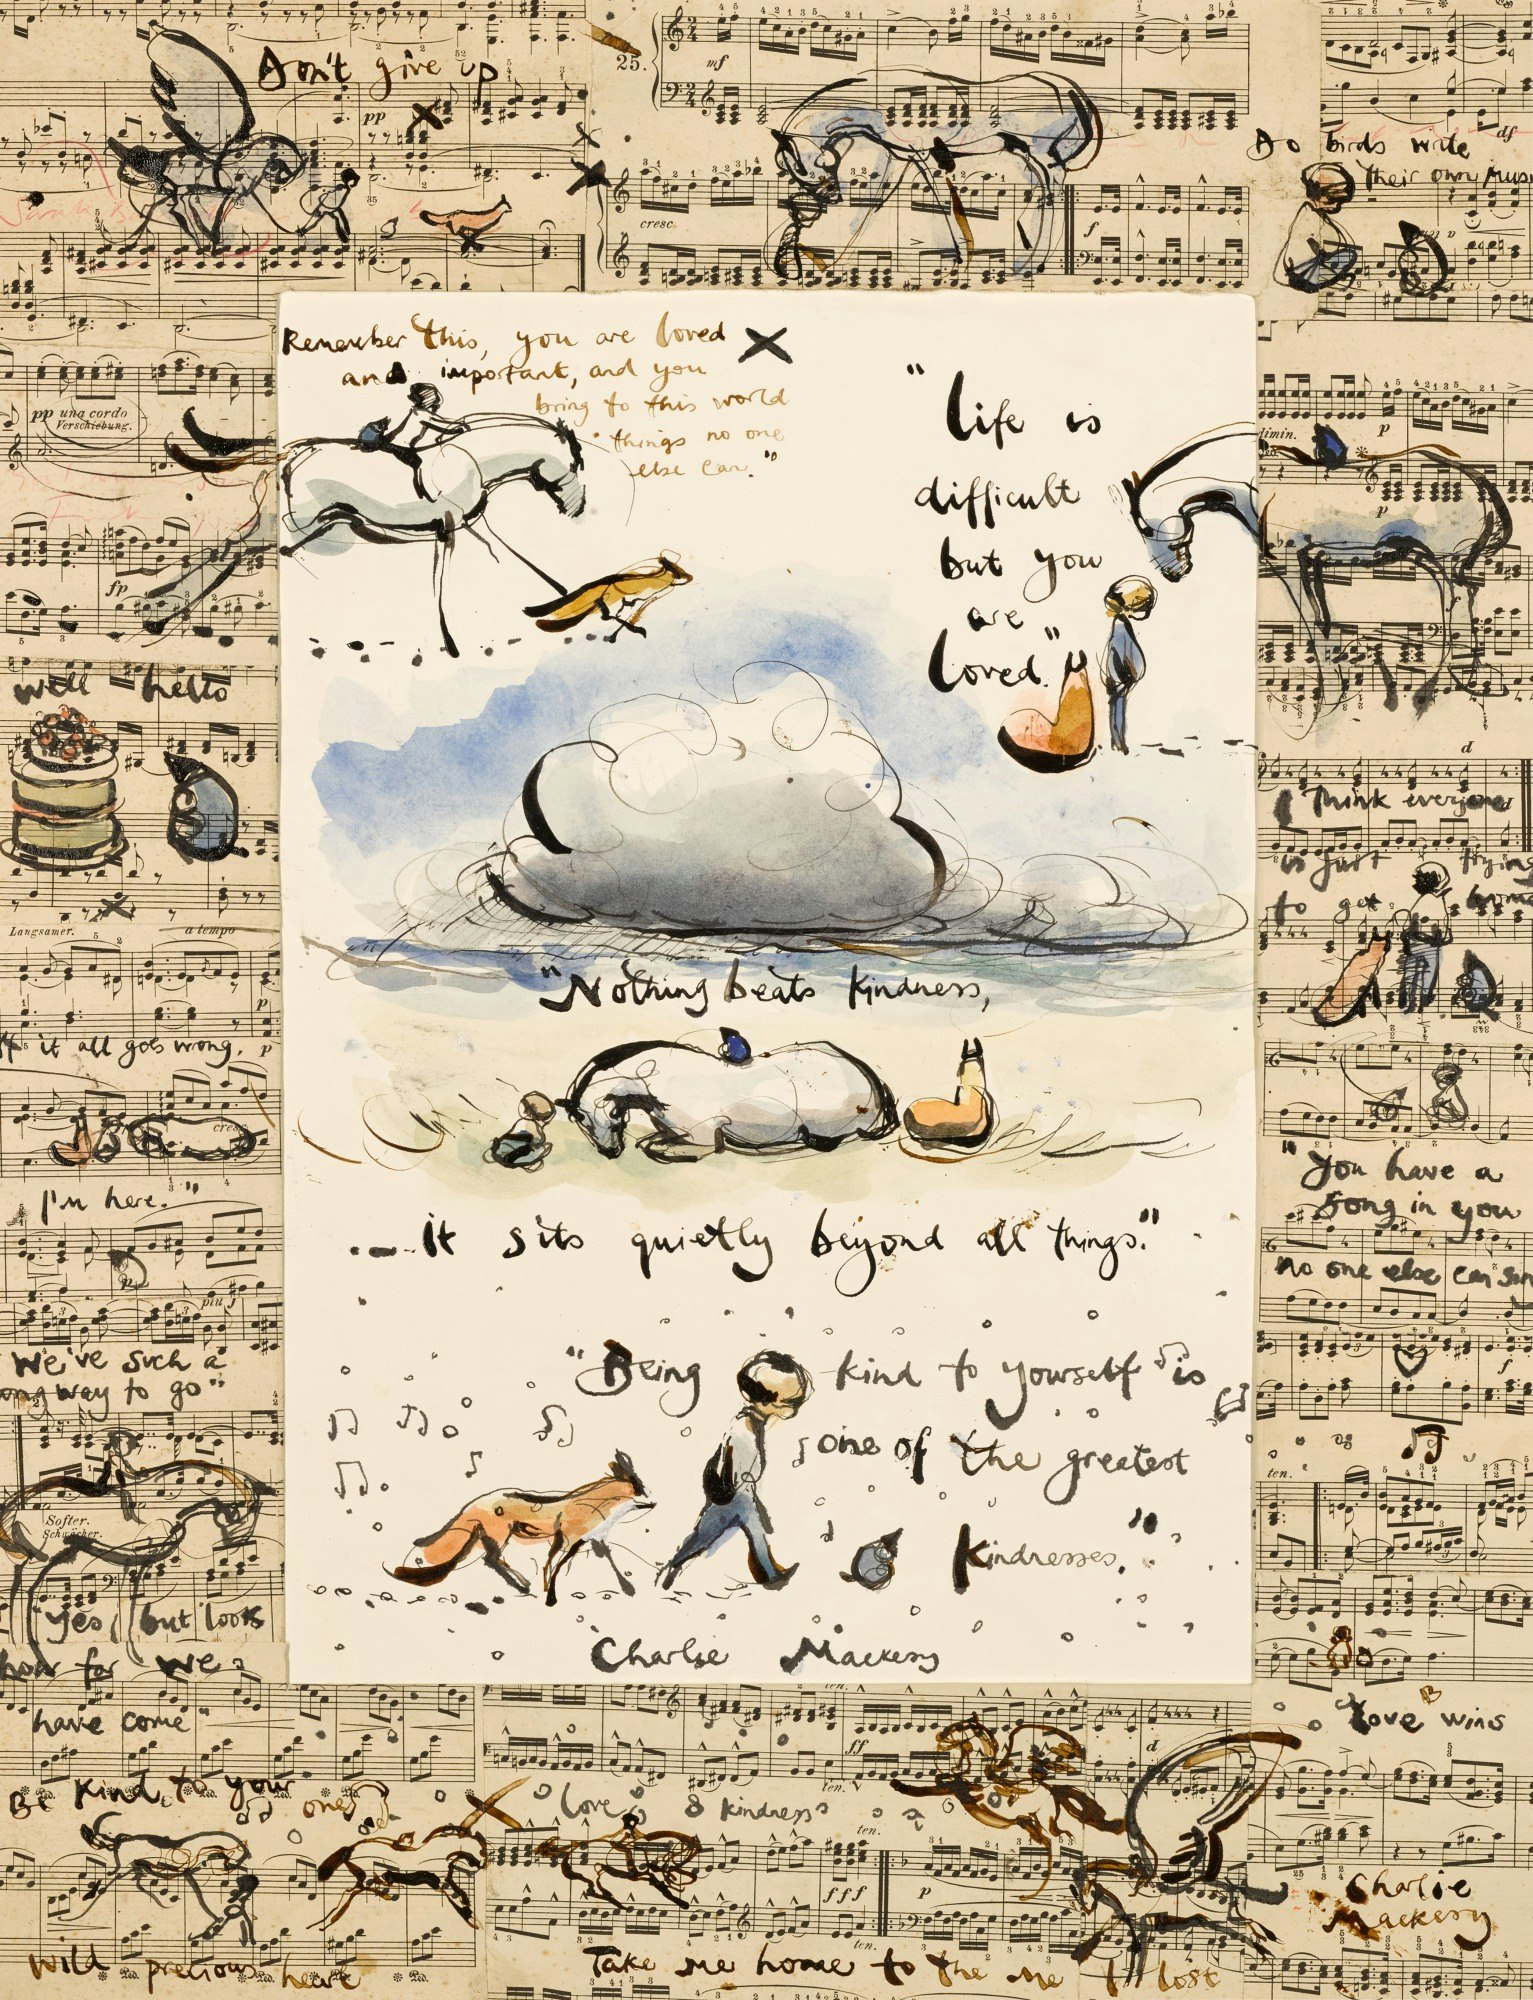 Don't give up
25.
mf
pp
cresc
f
df
Do birds write
their own
Remember this, you are loved
and important, and you
bring to this world
things no one
else can."
"Life is
difficult
but you
are
loved."
pp una corda
Verschiebung.
fp
dimin.
p
p
well hello
Langsamer.
a tempo
p
it all goes wrong.
p
cresc
I'm here."
p
più f
We've such a
way to go"
Softer.
Schwächer.
"yes, but look
how far we
have come"
I think everyone
is just trying
to get home
"Nothing beats kindness,
it sits quietly beyond all things."
"You have a
song in you
no one else can
"Being kind to yourself is
one of the greatest
kindnesses."
Charlie Mackesy
ten.
Love wins
Be kind to your ones
Love & kindness
ten.
ff
ten.
ten.
fff
p
ten.
d
Charlie
Mackesy
wild precious heart
Take me home to the me I lost